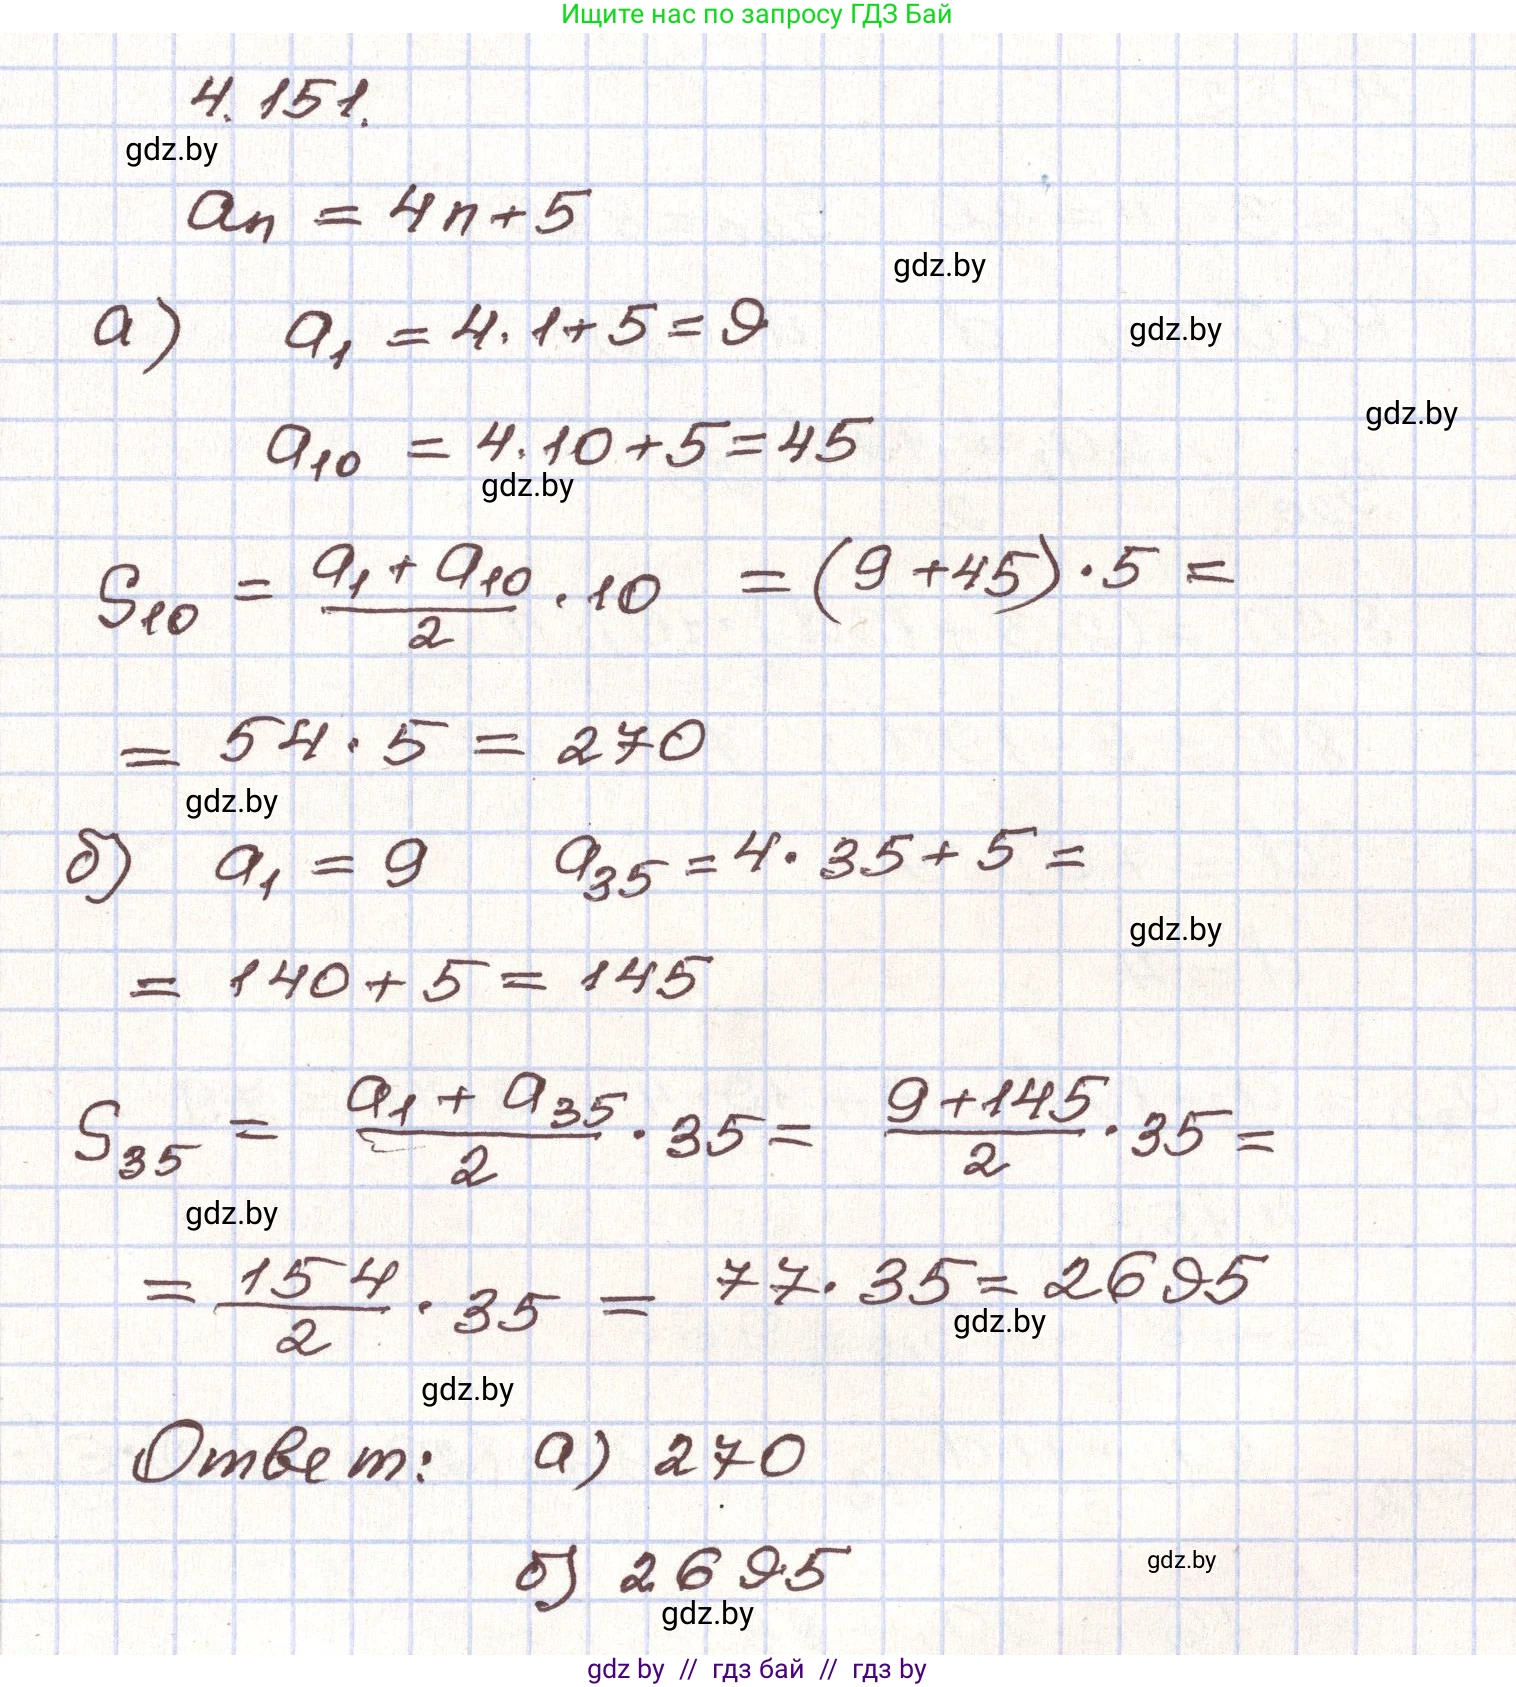 Ищите нас по запросу ГДЗ Бай
4.151.
gdz.by
aₙ = 4n+5
gdz.by
а) a₁ = 4·1+5=9
gdz.by
gdz.by
a₁₀ = 4·10+5=45
gdz.by
S₁₀ = (a₁+a₁₀)/2 · 10 = (9+45)·5 =
= 54·5 = 270
gdz.by
б) a₁ = 9 a₃₅ = 4·35+5 =
gdz.by
= 140+5 = 145
S₃₅ = (a₁+a₃₅)/2 · 35 = (9+145)/2 · 35 =
gdz.by
= 154/2 · 35 = 77·35 = 2695
gdz.by
gdz.by
Ответ: а) 270
б) 2695
gdz.by
gdz.by
gdz by // гдз бай // гдз by